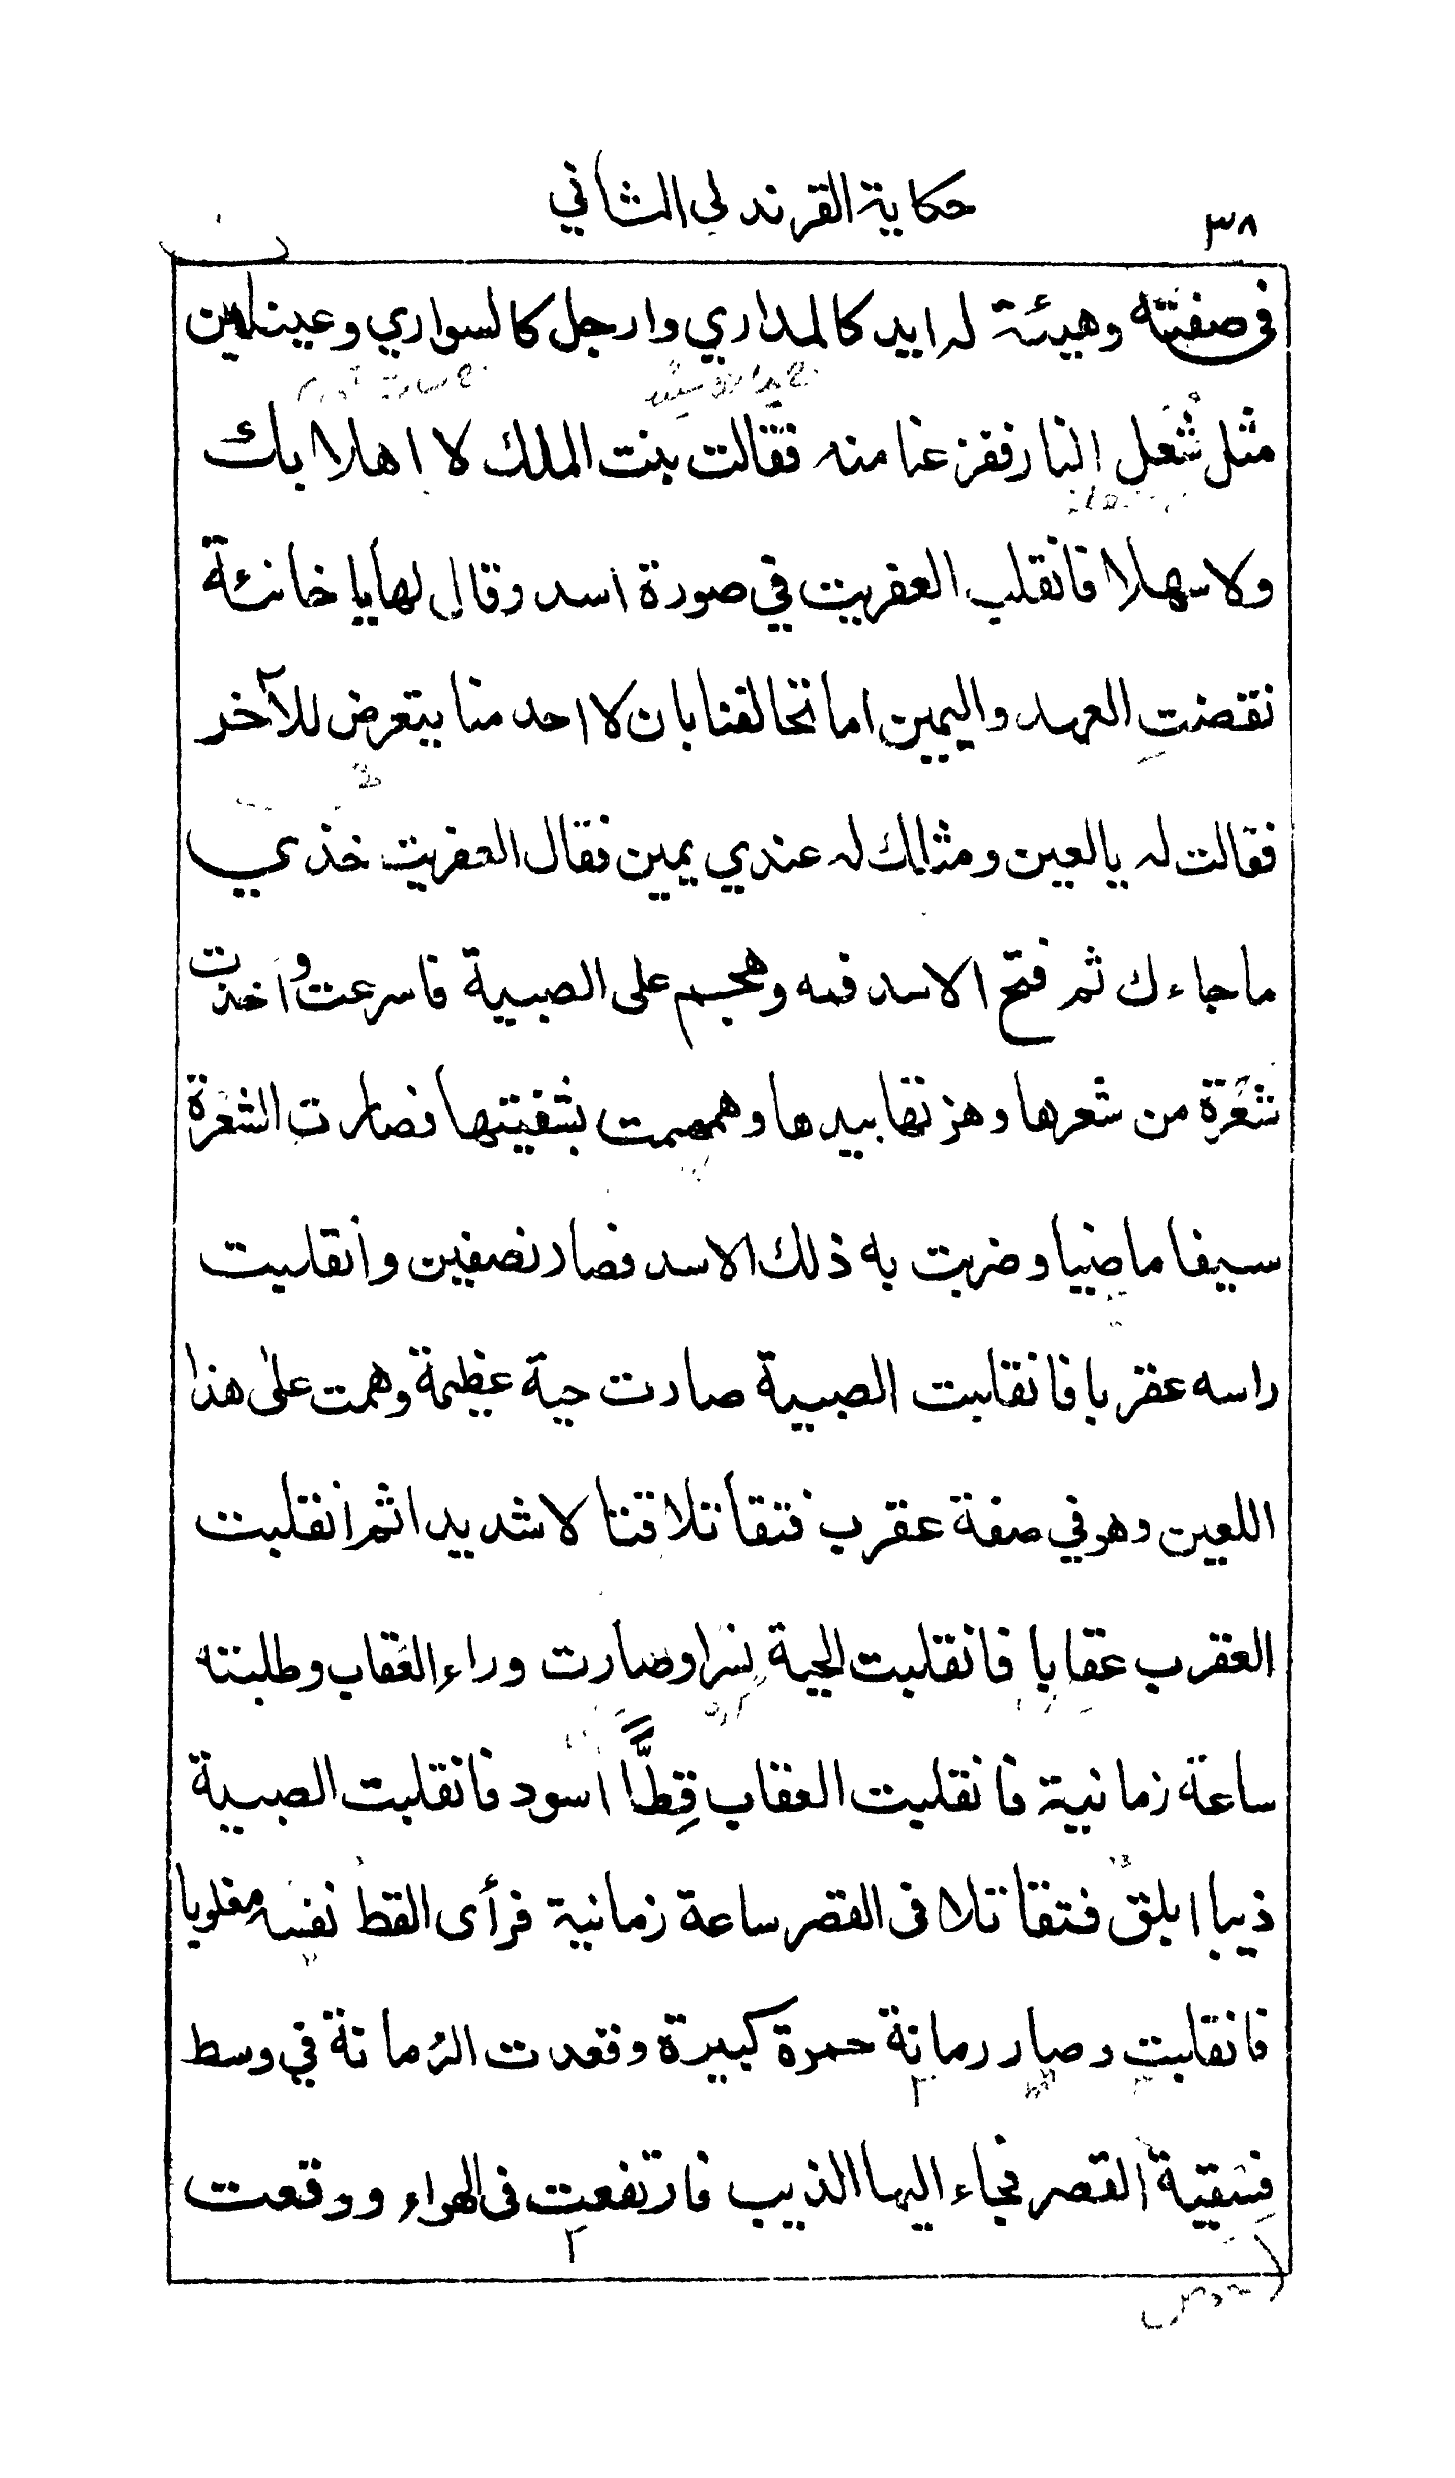 ٣٨
حكاية القرندلي الثاني
في صفتة وهيئة له ايد كالمداري وارجل كالسواري وعينين
مثل شُعل النار ففزعنا منه فقالت بنت الملك لا اهلا بك
ولا سهلا فانقلب العفريت في صورة اسد وقال لها يا خائنة
نقضتِ العهد واليمين اما تحالفنا بان لا احد منا يتعرض للآخر
فقالت له يا لعين ومثلك له عندي يمين فقال العفريت خذي
ما جاءك ثم فتح الاسد فمه وهجم على الصبية فاسرعت و اخذت
شَعَرَة من شعرها وهزتها بيدها وهمهمت بشفيتها فصارت الشعرة
سيفا ماضيا وضربت به ذلك الاسد فصار نصفين وانقلبت
راسه عقربا فانقلبت الصبية صارت حية عظيمة وهمت على هذا
اللعين وهو في صفة عقرب فتقاتلا قتالا شديدا ثم انقلبت
العقرب عقابا فانقلبت الحية نسرا وصارت وراء العقاب وطلبته
ساعة زمانية فانقلبت العقاب قِطًّا اسود فانقلبت الصبية
ذيبا ابلق فتقاتلا في القصر ساعة زمانية فرأى القط نفسه مغلوبا
فانقلبت وصار رمانة حمرة كبيرة وقعدت الرُمانة في وسط
فسقية القصر فجاء اليها الذيب فارتفعت في الهواء ووقعت